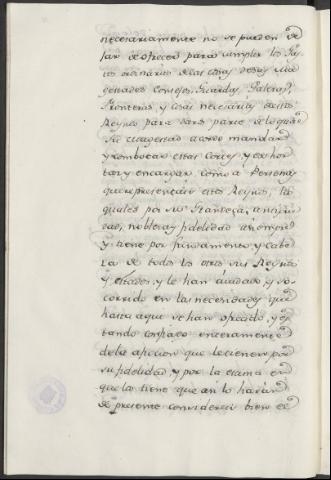 necesariamente no se pueden de
jar de ofrecer para cumplir los Gas
tos ordinarios de las Casas de sus Ma
gestades Consejos, Guardas, Galeras,
fronteras, y cosas necesarias destos
Reynos para dars parte de lo qual
Su Magestad acordo mandar
y combocar estas Cortes, y exhor
tar y encargar como a Personas
que representais estos Reynos, los
quales por su Grandeça, antigue
dad, nobleza y fidelidad an siempre
y tiene por fundamento y cabe
za de todos los otros sus Reynos
y estados, y le han ayudado, y so
corrido en las necesidades que
hasta aqui se han ofrecido, y es
tando confiado enteramente
de la aficion que le tienen por
su fidelidad, y por la estima en
que la tiene que ansi lo harán
de presente considereis bien el